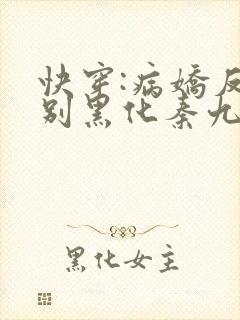 快穿:病娇反
别黑化秦九
黑化女主